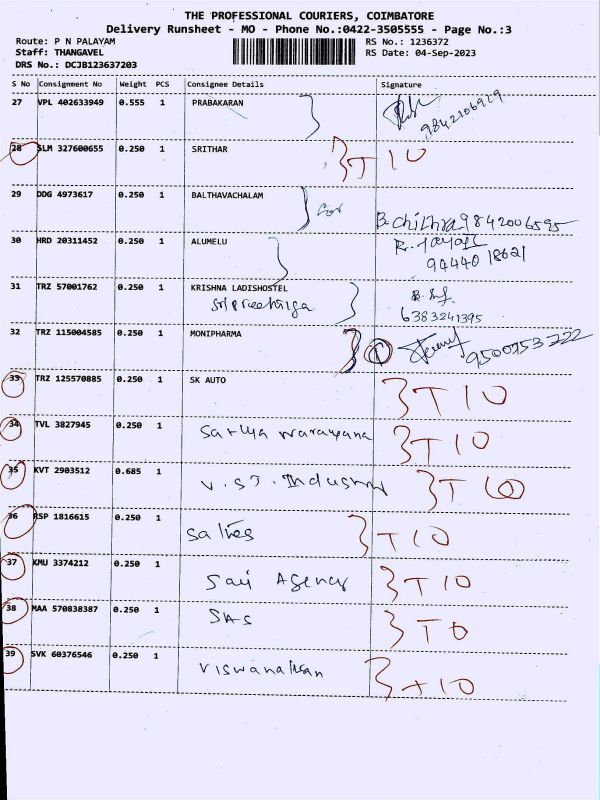 THE PROFESSIONAL COURIERS, COIMBATORE
Delivery Runsheet - MO - Phone No.:0422-3505555 - Page No.:3
Route: P N PALAYAM RS No.: 1236372
Staff: THANGAVEL RS Date: 04-Sep-2023
DRS No.: DCJB123637203
S No Consignment No Weight PCS Consignee Details Signature
27 VPL 402633949 0.555 1 PRABAKARAN
9842106929
28 SLM 327600655 0.250 1 SRITHAR T 10
29 DDG 4973617 0.250 1 BALTHAVACHALAM
B. Chithra 9842006595
30 HRD 20311452 0.250 1 ALUMELU
94440 18621
31 TRZ 57001762 0.250 1 KRISHNA LADISHOSTEL
6383241395
32 TRZ 115004585 0.250 1 MONIPHARMA
9500753722
33 TRZ 125570885 0.250 1 SK AUTO T 10
34 TVL 3827945 0.250 1 Satya Narayana T 10
35 KVT 2903512 0.685 1 V. ST. Industry T 10
36 RSP 1816615 0.250 1 T 10
37 KMU 3374212 0.250 1 Sai Agency T 10
38 MAA 570838387 0.250 1 SAS T 0
39 SVK 60376546 0.250 1 Viswanathan T 10